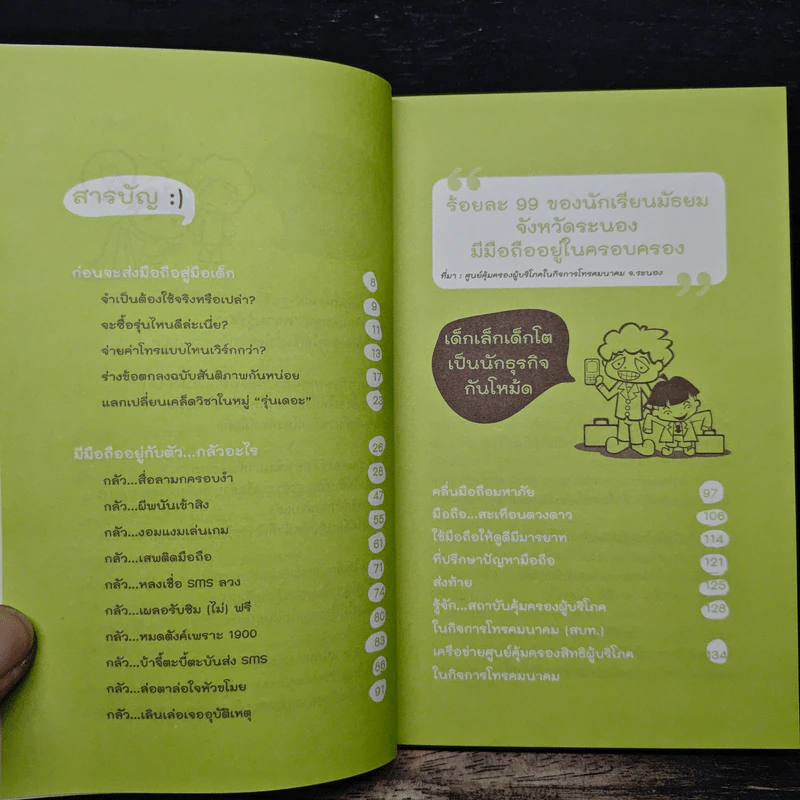 สารบัญ :)
ก่อนจะส่งมือถือสู่มือเด็ก 8
จำเป็นต้องใช้จริงหรือเปล่า? 9
จะซื้อรุ่นไหนดีล่ะเนี่ย? 11
จ่ายค่าโทรแบบไหนเวิร์กกว่า? 13
ร่างข้อตกลงฉบับสันติภาพกันหน่อย 17
แลกเปลี่ยนเคล็ดวิชาในหมู่ “รุ่นเดอะ” 23
มีมือถืออยู่กับตัว...กลัวอะไร 26
กลัว...สื่อลามกครอบงำ 28
กลัว...ผีพนันเข้าสิง 47
กลัว...งอมแงมเล่นเกม 55
กลัว...เสพติดมือถือ 61
กลัว...หลงเชื่อ SMS ลวง 71
กลัว...เผลอรับซิม (ไม่) ฟรี 74
กลัว...หมดตังค์เพราะ 1900 80
กลัว...บ้าจี้ตะบี้ตะบันส่ง SMS 83
กลัว...ล่อตาล่อใจหัวขโมย 86
กลัว...เลินเล่อเจออุบัติเหตุ 91
“ร้อยละ 99 ของนักเรียนมัธยม
จังหวัดระนอง
มีมือถืออยู่ในครอบครอง”
ที่มา : ศูนย์คุ้มครองผู้บริโภคในกิจการโทรคมนาคม จ.ระนอง
เด็กเล็กเด็กโต
เป็นนักธุรกิจ
กันโหม้ด
คลื่นมือถือมหาภัย 97
มือถือ...สะเทือนดวงดาว 106
ใช้มือถือให้ดูดีมีมารยาท 114
ที่ปรึกษาปัญหามือถือ 121
ส่งท้าย 125
รู้จัก...สถาบันคุ้มครองผู้บริโภค 128
ในกิจการโทรคมนาคม (สบท.)
เครือข่ายศูนย์คุ้มครองสิทธิผู้บริโภค 134
ในกิจการโทรคมนาคม